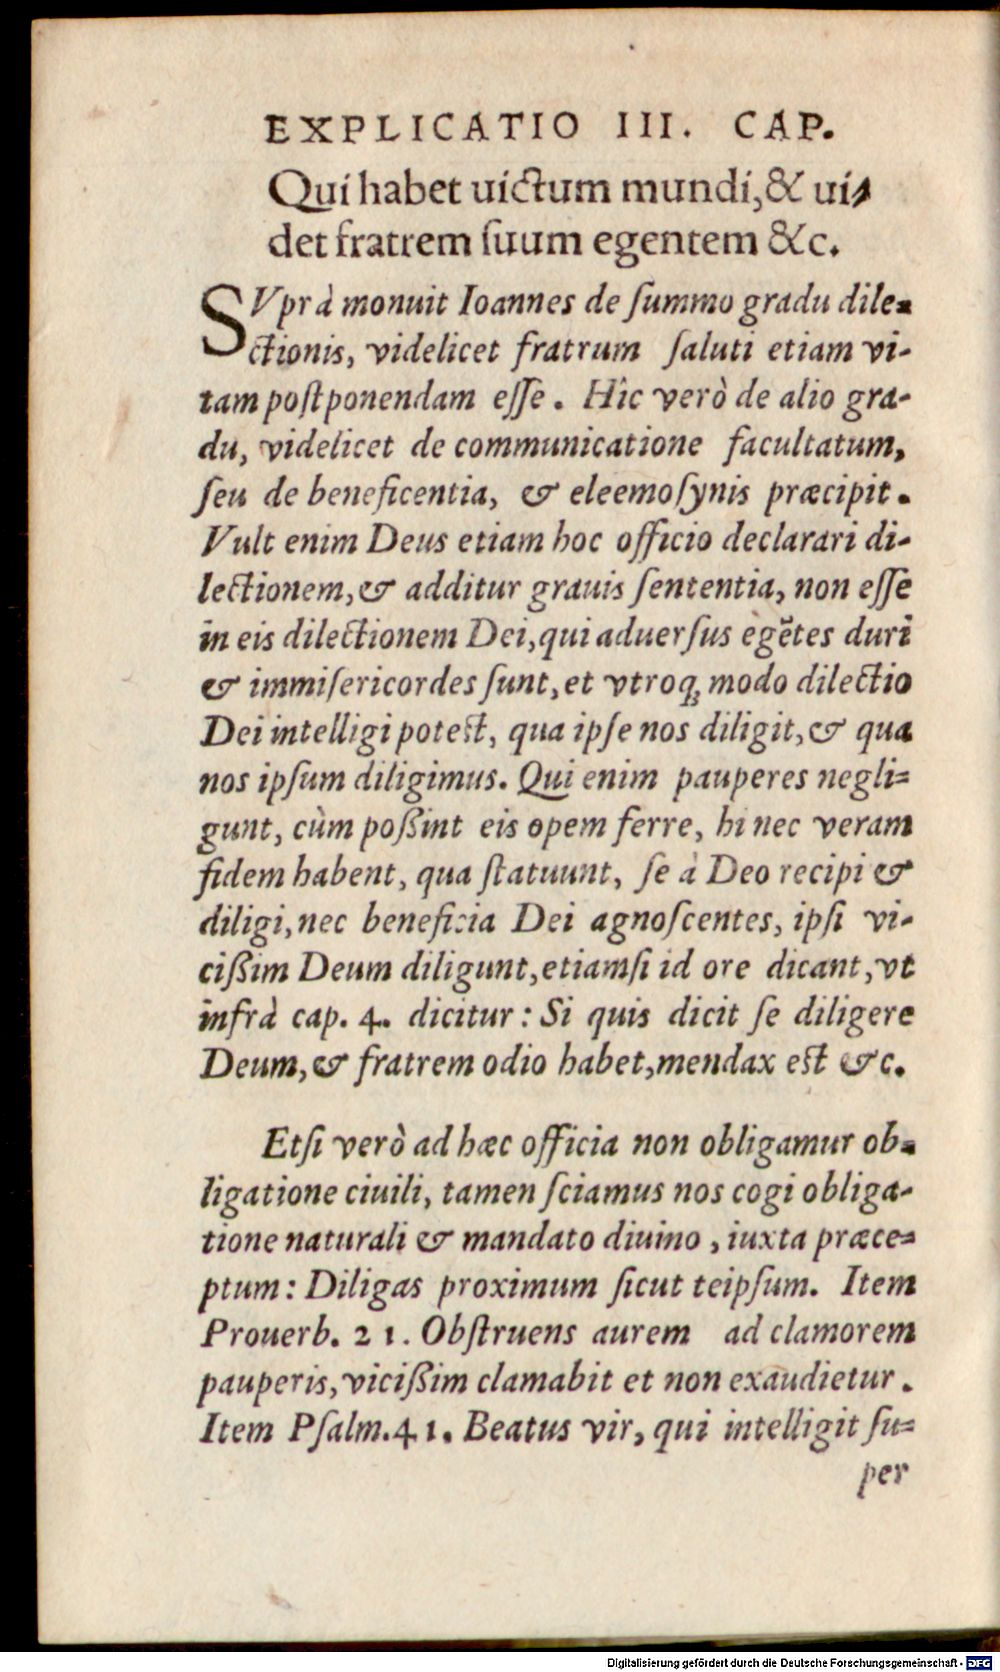 EXPLICATIO III. CAP.
Qui habet uictum mundi, & ui-
det fratrem ſuum egentem &c.
SVprà monuit Ioannes de ſummo gradu dile-
ctionis, videlicet fratrum ſaluti etiam vi-
tam poſtponendam eſſe. Hîc verò de alio gra-
du, videlicet de communicatione facultatum,
ſeu de beneficentia, & eleemoſynis præcipit.
Vult enim Deus etiam hoc officio declarari di-
lectionem, & additur grauis ſententia, non eſſe
in eis dilectionem Dei, qui aduerſus egẽtes duri
& immiſericordes ſunt, et vtroq; modo dilectio
Dei intelligi poteſt, qua ipſe nos diligit, & qua
nos ipſum diligimus. Qui enim pauperes negli-
gunt, cùm poßint eis opem ferre, hi nec veram
fidem habent, qua ſtatuunt, ſe à Deo recipi &
diligi, nec beneficia Dei agnoſcentes, ipſi vi-
cißim Deum diligunt, etiamſi id ore dicant, vt
infrà cap. 4. dicitur: Si quis dicit ſe diligere
Deum, & fratrem odio habet, mendax eſt &c.
Etſi verò ad hæc officia non obligamur ob-
ligatione ciuili, tamen ſciamus nos cogi obliga-
tione naturali & mandato diuino, iuxta præce-
ptum: Diligas proximum ſicut teipſum. Item
Prouerb. 21. Obſtruens aurem ad clamorem
pauperis, vicißim clamabit et non exaudietur.
Item Pſalm. 41. Beatus vir, qui intelligit ſu-
per
Digitalisierung gefördert durch die Deutsche Forschungsgemeinschaft - DFG